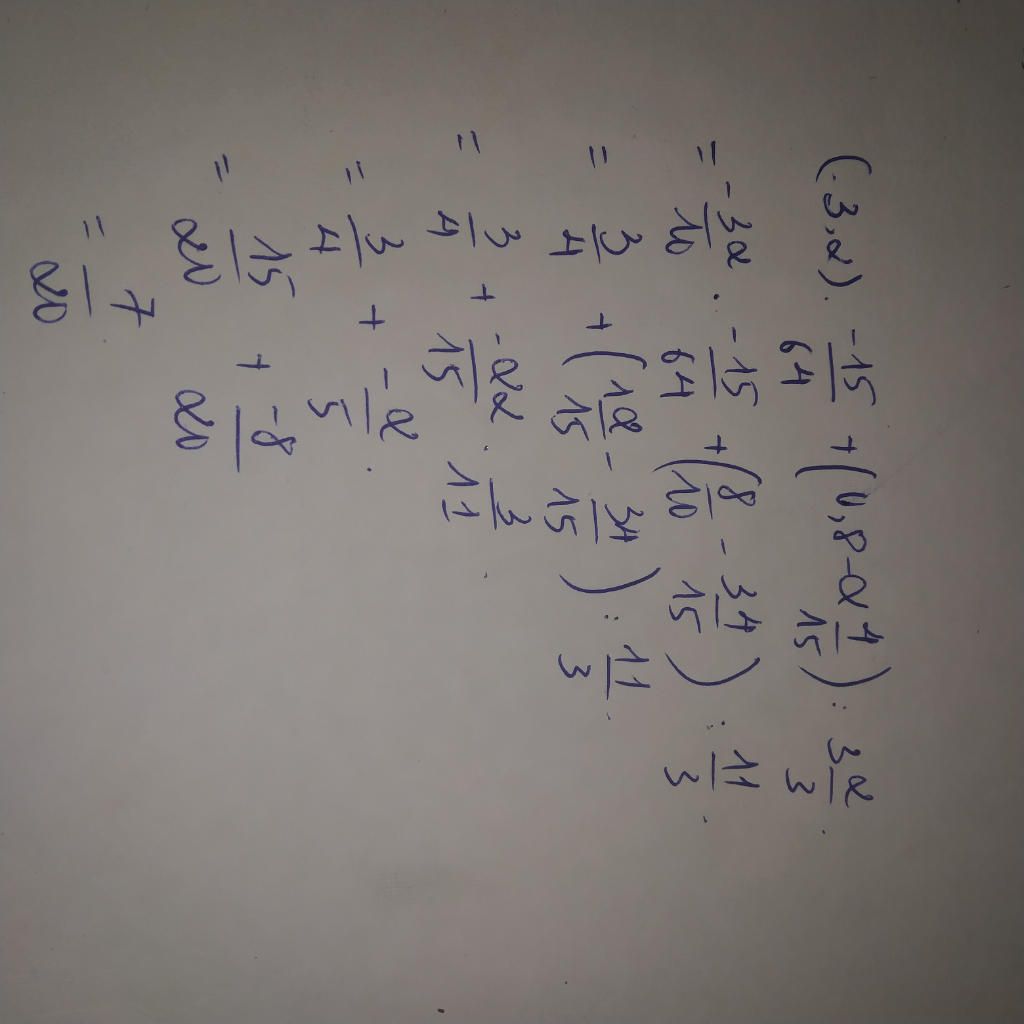 (-3,2). -15/64 + (0,8-2 4/15) : 3 2/3.
= -32/10 . -15/64 + (8/10 - 34/15) : 11/3.
= 3/4 + (12/15 - 34/15) : 11/3.
= 3/4 + -22/15 . 3/11.
= 3/4 + -2/5.
= 15/20 + -8/20
= 7/20